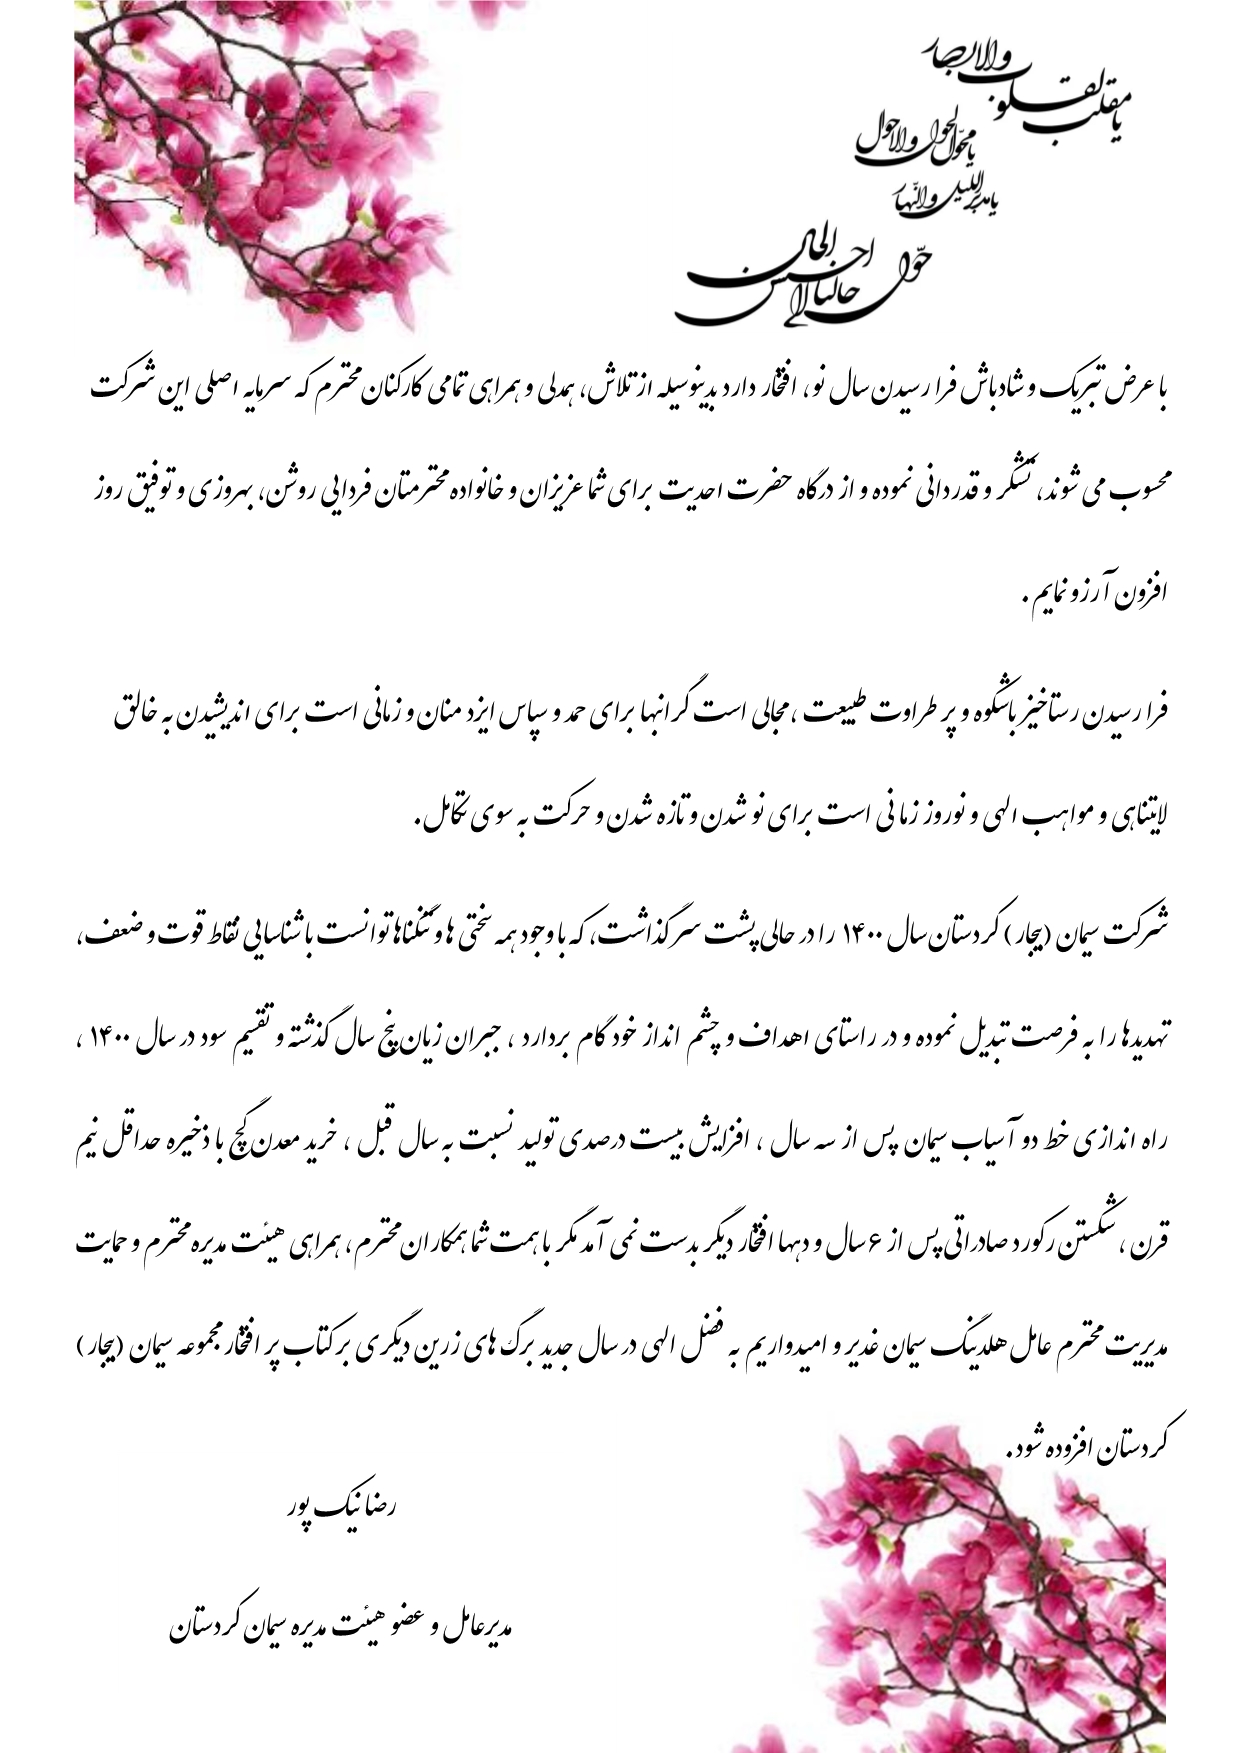 یا مقلب القلوب والابصار
یا محوّل الحول والاحوال
یا مدبر اللیل و النّهار
حوّل حالنا الی احسن الحال
با عرض تبریک و شادباش فرا رسیدن سال نو، افتخار دارد بدینوسیله از تلاش، همدلی و همراهی تمامی کارکنان محترم که سرمایه اصلی این شرکت
محسوب می شوند، تشکر و قدردانی نموده و از درگاه حضرت احدیت برای شما عزیزان و خانواده محترمتان فردایی روشن، بهروزی و توفیق روز
افزون آرزو نمایم .
فرا رسیدن رستاخیز باشکوه و پر طراوت طبیعت ،مجالی است گرانبها برای حمد و سپاس ایزد منان و زمانی است برای اندیشیدن به خالق
لایتناهی و مواهب الهی و نوروز زمانی است برای نو شدن و تازه شدن و حرکت به سوی تکامل.
شرکت سیمان (بیجار) کردستان سال ۱۴۰۰ را در حالی پشت سر گذاشت، که باوجود همه سختی ها و تنگناها توانست با شناسایی نقاط قوت و ضعف،
تهدیدها را به فرصت تبدیل نموده و در راستای اهداف و چشم انداز خود گام بردارد ، جبران زیان پنج سال گذشته و تقسیم سود در سال ۱۴۰۰ ،
راه اندازی خط دو آسیاب سیمان پس از سه سال ، افزایش بیست درصدی تولید نسبت به سال قبل ، خرید معدن گچ با ذخیره حداقل نیم
قرن ، شکستن رکورد صادراتی پس از ۶ سال و دهها افتخار دیگر بدست نمی آمد مگر با همت شما همکاران محترم، همراهی هیئت مدیره محترم و حمایت
مدیریت محترم عامل هلدینگ سیمان غدیر و امیدواریم به فضل الهی در سال جدید برگ های زرین دیگری بر کتاب پر افتخار مجموعه سیمان (بیجار)
کردستان افزوده شود.
رضا نیک پور
مدیرعامل و عضو هیئت مدیره سیمان کردستان